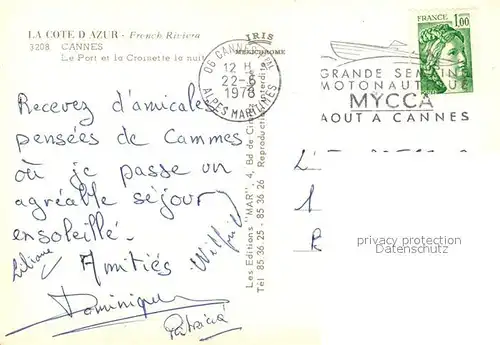 LA COTE D'AZUR - French Riviera
3208 CANNES
Le Port et la Croisette la nuit
IRIS
MEXICHROME
06 CANNES
12 H
22-6
1978
ALPES MARITIMES
FRANCE
1,00
GRANDE SEMAINE
MOTONAUTIQUE
MYCCA
AOUT A CANNES
Recevez d'amicales
pensées de Cannes
où je passe un
agréable séjour
ensoleillé.
Amitiés
Liliane
Wilfrid
Dominique
Patricia
Les Editions "MAR", 4, Bd de
Tél 85 36 25 - 85 36 26 Reproduction interdite
privacy protection
Datenschutz